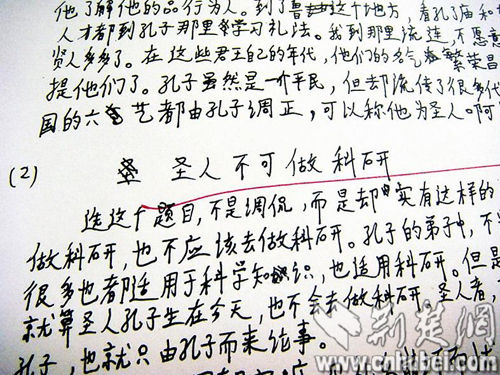 他了解他的品行为人。到了鲁这个地方，看孔子庙和
人才都到孔子那里学习礼法。我到那里流连不愿意
贤人多多了。在这些君王自己的年代，他们的名气繁荣昌
提他们了。孔子虽然是一介平民，但却流传了很多代
国的六艺都由孔子调正，可以称他为圣人啊
(2) 圣人不可做科研
选这个题目，不是调侃，而是却实有这样的
做科研，也不应该去做科研。孔子的弟子中，不
很多也都适用于科学知识，也适用科研。但是
就算圣人孔子生在今天，也不会去做科研。圣人者，
孔子，也就只由孔子而来论事。
荆楚网
www.cnhubei.com